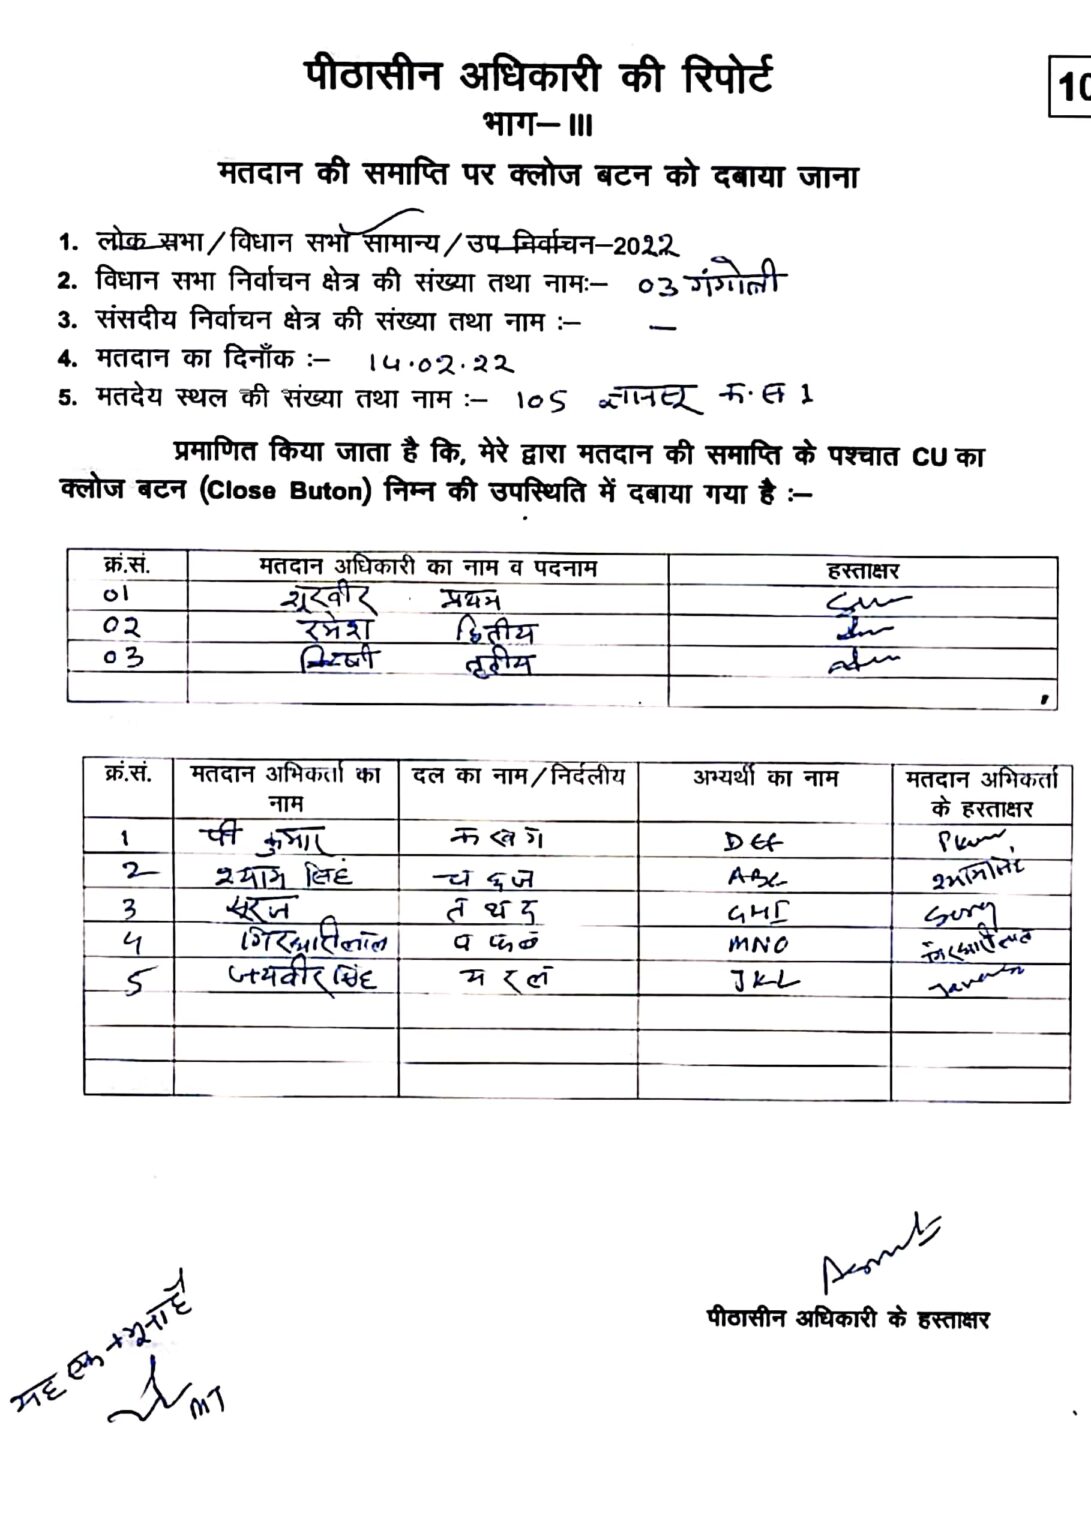 पीठासीन अधिकारी की रिपोर्ट
10
भाग– III
मतदान की समाप्ति पर क्लोज बटन को दबाया जाना
1. लोक सभा/विधान सभा सामान्य/उप निर्वाचन–2022
2. विधान सभा निर्वाचन क्षेत्र की संख्या तथा नामः– 03 गंगोली
3. संसदीय निर्वाचन क्षेत्र की संख्या तथा नाम :– —
4. मतदान का दिनाँक :– 14.02.22
5. मतदेय स्थल की संख्या तथा नाम :– 105 क.स 1
प्रमाणित किया जाता है कि, मेरे द्वारा मतदान की समाप्ति के पश्चात CU का
क्लोज बटन (Close Buton) निम्न की उपस्थिति में दबाया गया है :–
क्रं.सं. मतदान अधिकारी का नाम व पदनाम हस्ताक्षर
01 शूरवीर प्रथम
02 रमेश द्वितीय
03 तृतीय
क्रं.सं. मतदान अभिकर्ता का नाम दल का नाम/निर्दलीय अभ्यर्थी का नाम मतदान अभिकर्ता के हस्ताक्षर
1 पी कुमार क ख ग DEF
2 श्याम सिंह च छ ज ABC
3 सूरज त थ द GHI
4 गिरधारीलाल प फ ब MNO
5 जयवीर सिंह य र ल JKL
पीठासीन अधिकारी के हस्ताक्षर
यह एक नमूना है
MT